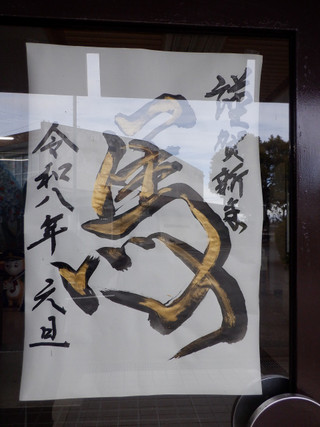 謹賀新年
馬
令和八年 元旦